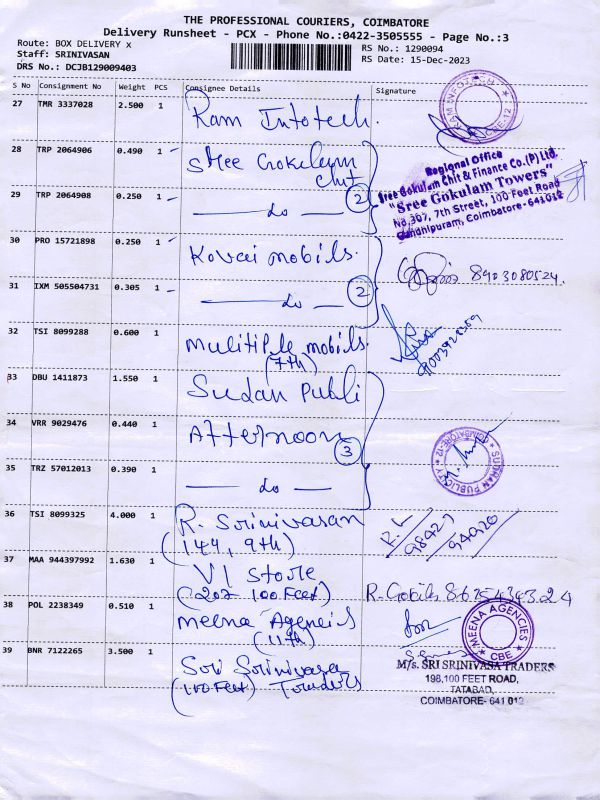 THE PROFESSIONAL COURIERS, COIMBATORE
Delivery Runsheet - PCX - Phone No.:0422-3505555 - Page No.:3
Route: BOX DELIVERY x
RS No.: 1290094
Staff: SRINIVASAN
RS Date: 15-Dec-2023
DRS No.: DCJB129009403
S No Consignment No Weight PCS Consignee Details Signature
27 TMR 3337028 2.500 1 Ram Infotech.
28 TRP 2064906 0.490 1 Shree Gokulam
Chit
Regional Office
Sree Gokulam Chit & Finance Co.(P)Ltd.
"Sree Gokulam Towers"
No,307, 7th Street, 100 Feet Road
Gandhipuram, Coimbatore-641012
29 TRP 2064908 0.250 1 — do — 2
30 PRO 15721898 0.250 1 Kovai mobils.
8903080524.
31 IXM 505504731 0.305 1 — do — 2
32 TSI 8099288 0.600 1 mulitiple mobils.
(7th)
33 DBU 1411873 1.550 1 Sudan Publi
34 VRR 9029476 0.440 1 Afternoon 3
35 TRZ 57012013 0.390 1 — do —
SUDHAN PUBLICITY
COIMBATORE-12
36 TSI 8099325 4.000 1 R. Srinivasan
(144, 9th)
R.K
98429
94920
37 MAA 944397992 1.630 1 VI Store
(207 100 Feet)
38 POL 2238349 0.510 1 meena Agencis
(11th)
MEENA AGENCIES
CBE
39 BNR 7122265 3.500 1 Sri Srinivasa
(100 Feet) Traders
M/s. SRI SRINIVASA TRADERS
198,100 FEET ROAD,
TATABAD,
COIMBATORE- 641 012